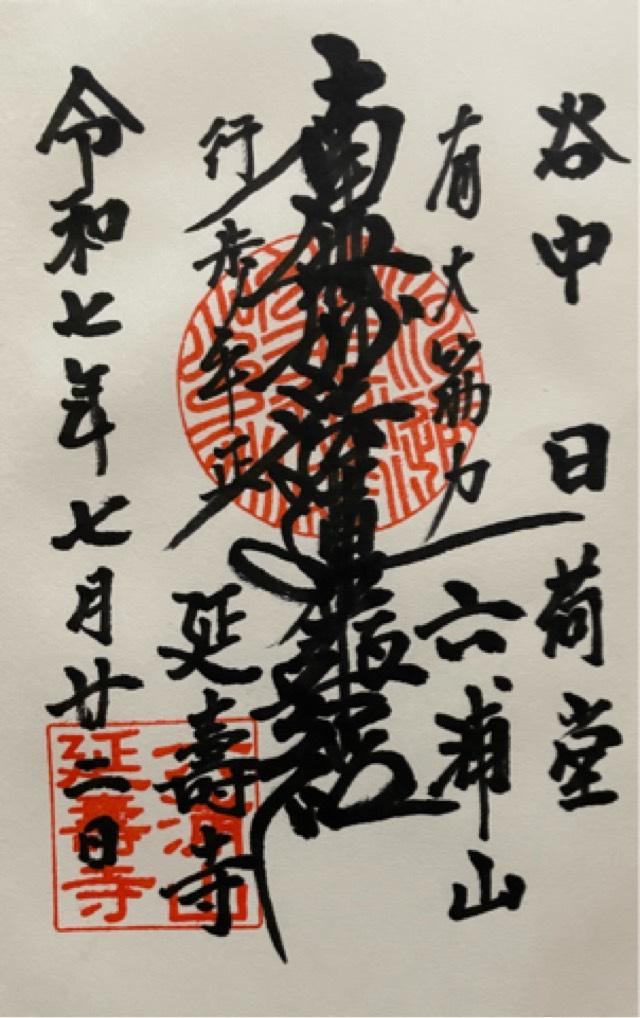 谷中 日荷堂
有大筋力
六浦山
南無妙法蓮華経
行歩平正
延壽寺
令和七年七月廿二日
延壽寺